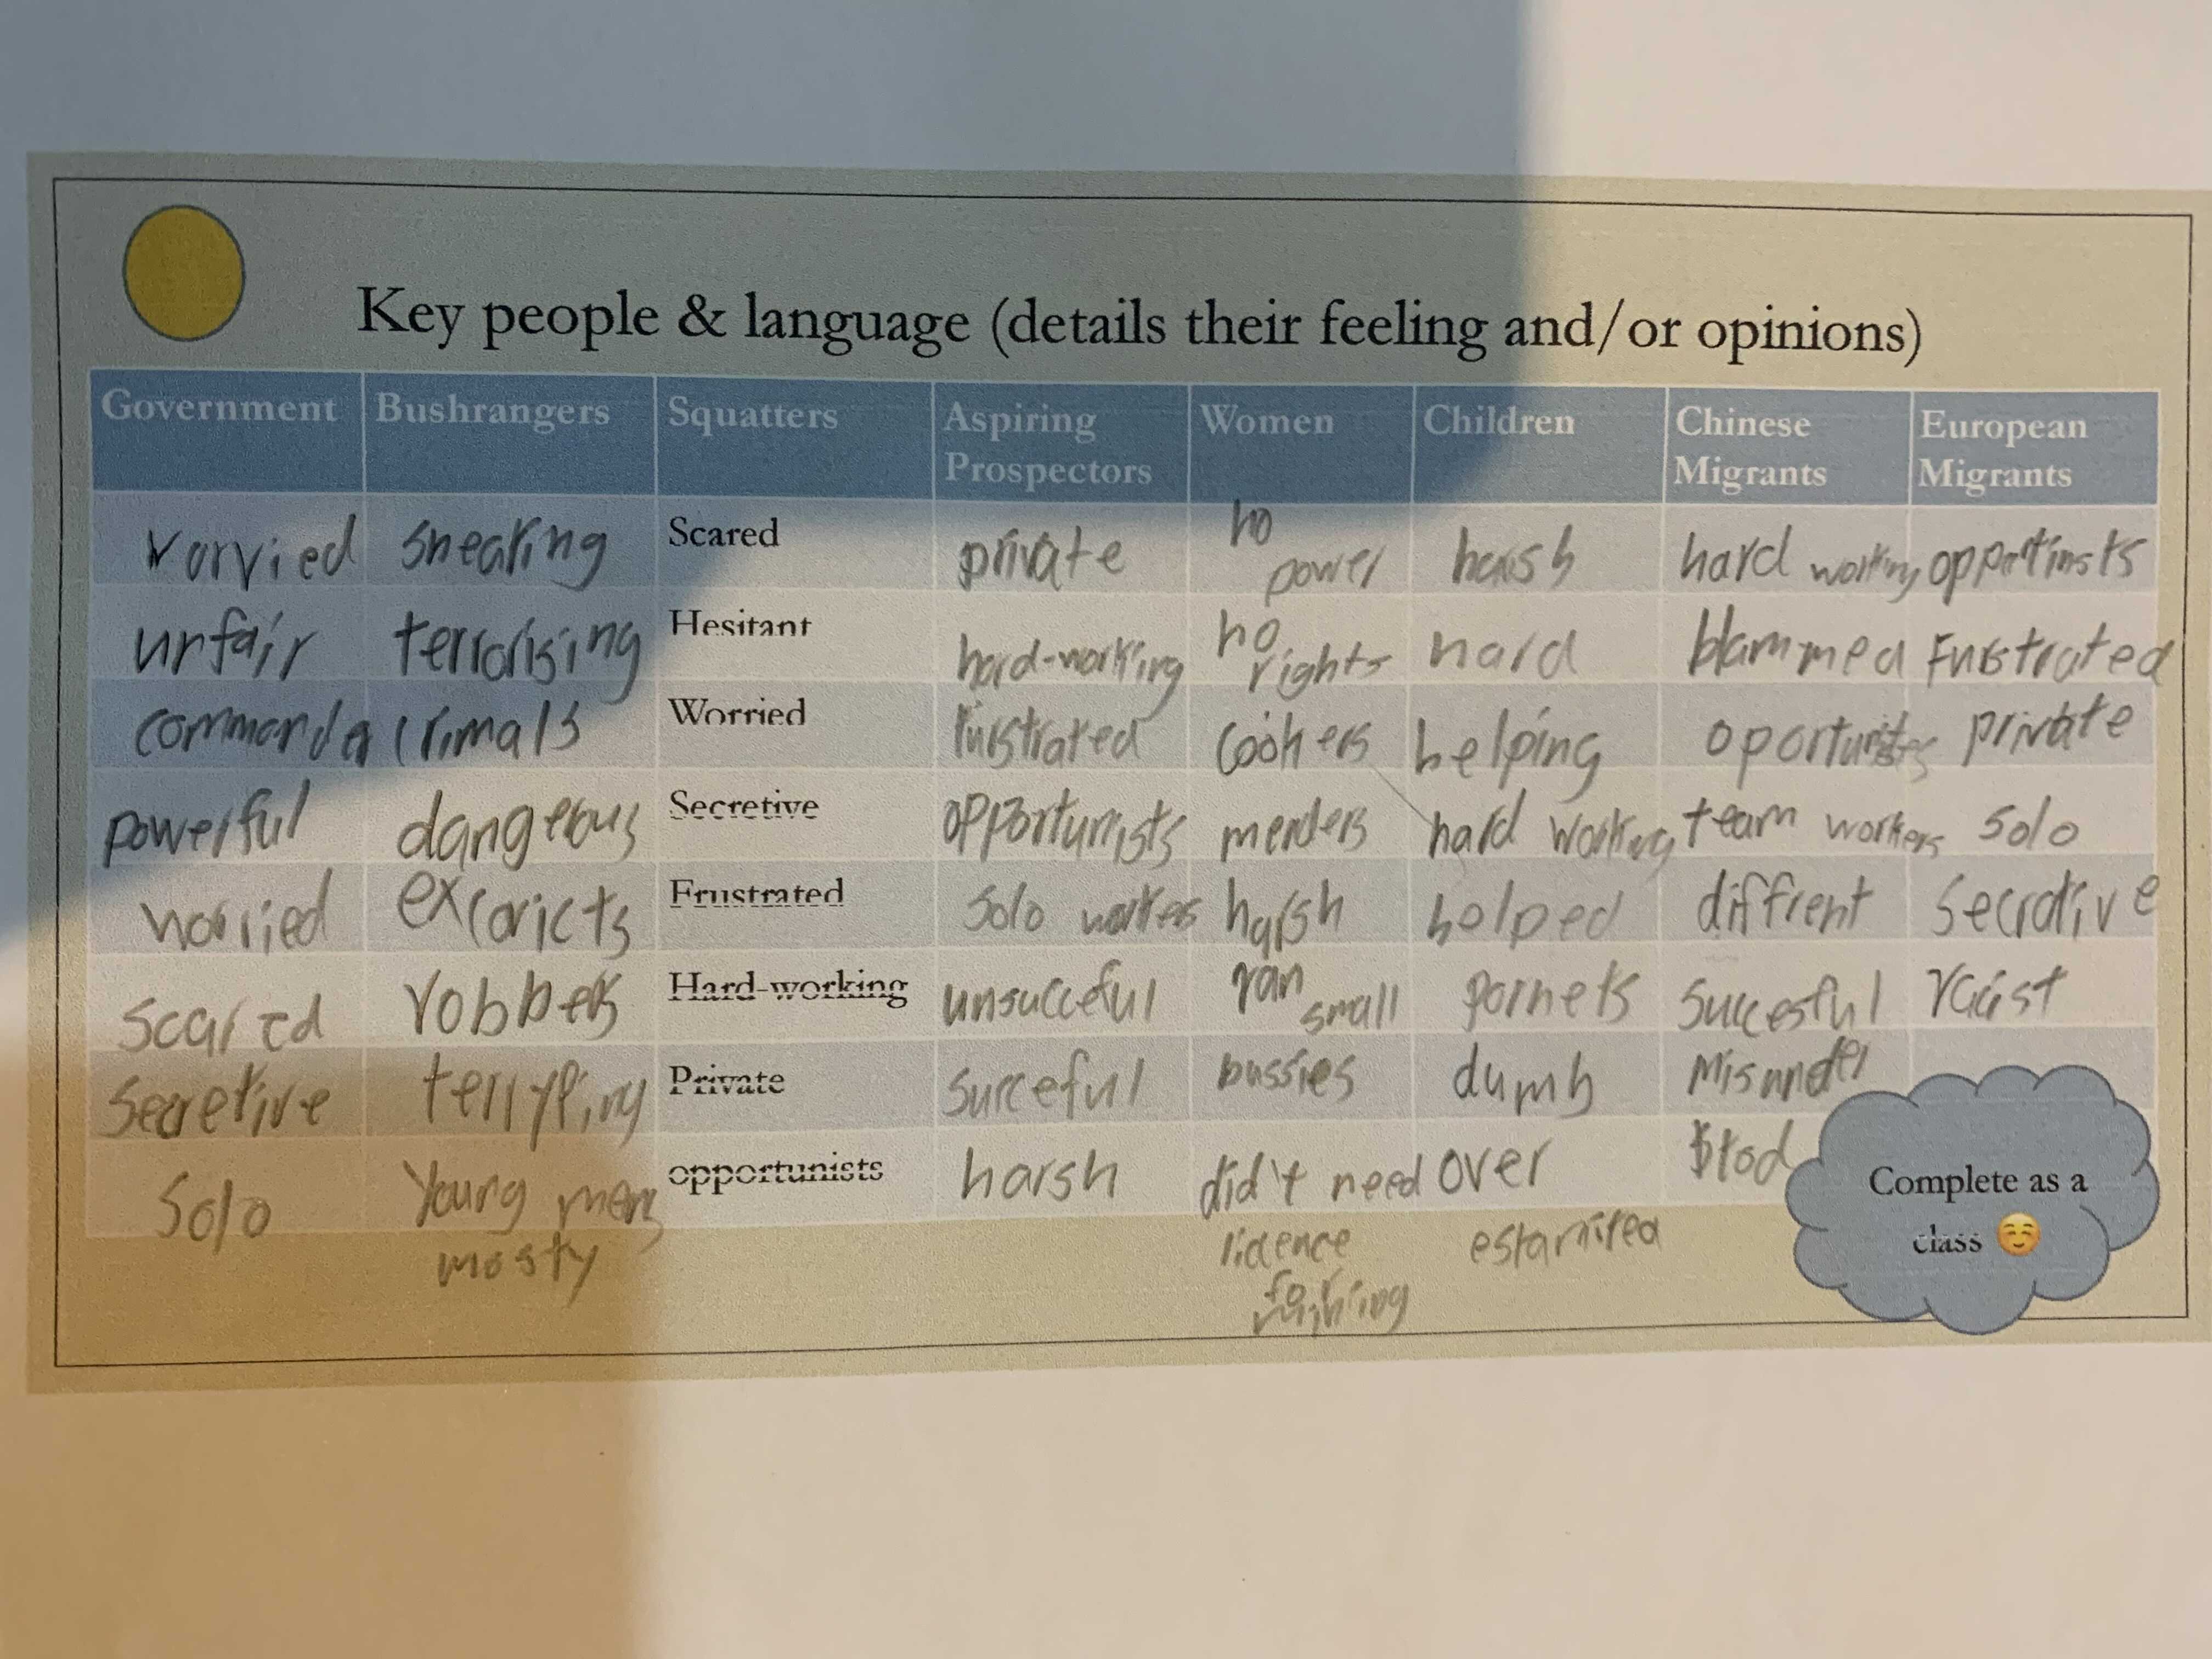 Key people & language (details their feeling and/or opinions)
Government Bushrangers Squatters Aspiring Prospectors Women Children Chinese Migrants European Migrants
worried sneaking Scared private no power harsh hard working
unfair terrorising Hesitant hard-working no rights hard blammed Frustrated
Worried frustrated cookers helping private
powerful dangerous Secretive opportunists menders hard working team workers solo
worried Frustrated solo workers harsh helped diffrent
scared robbers Hard-working unsucceful ran small succesful racist
secretive Private succeful bussies dumb misunder
solo young men opportunists harsh didn't need over stod
mosty licence
for
Complete as a
class ☺️